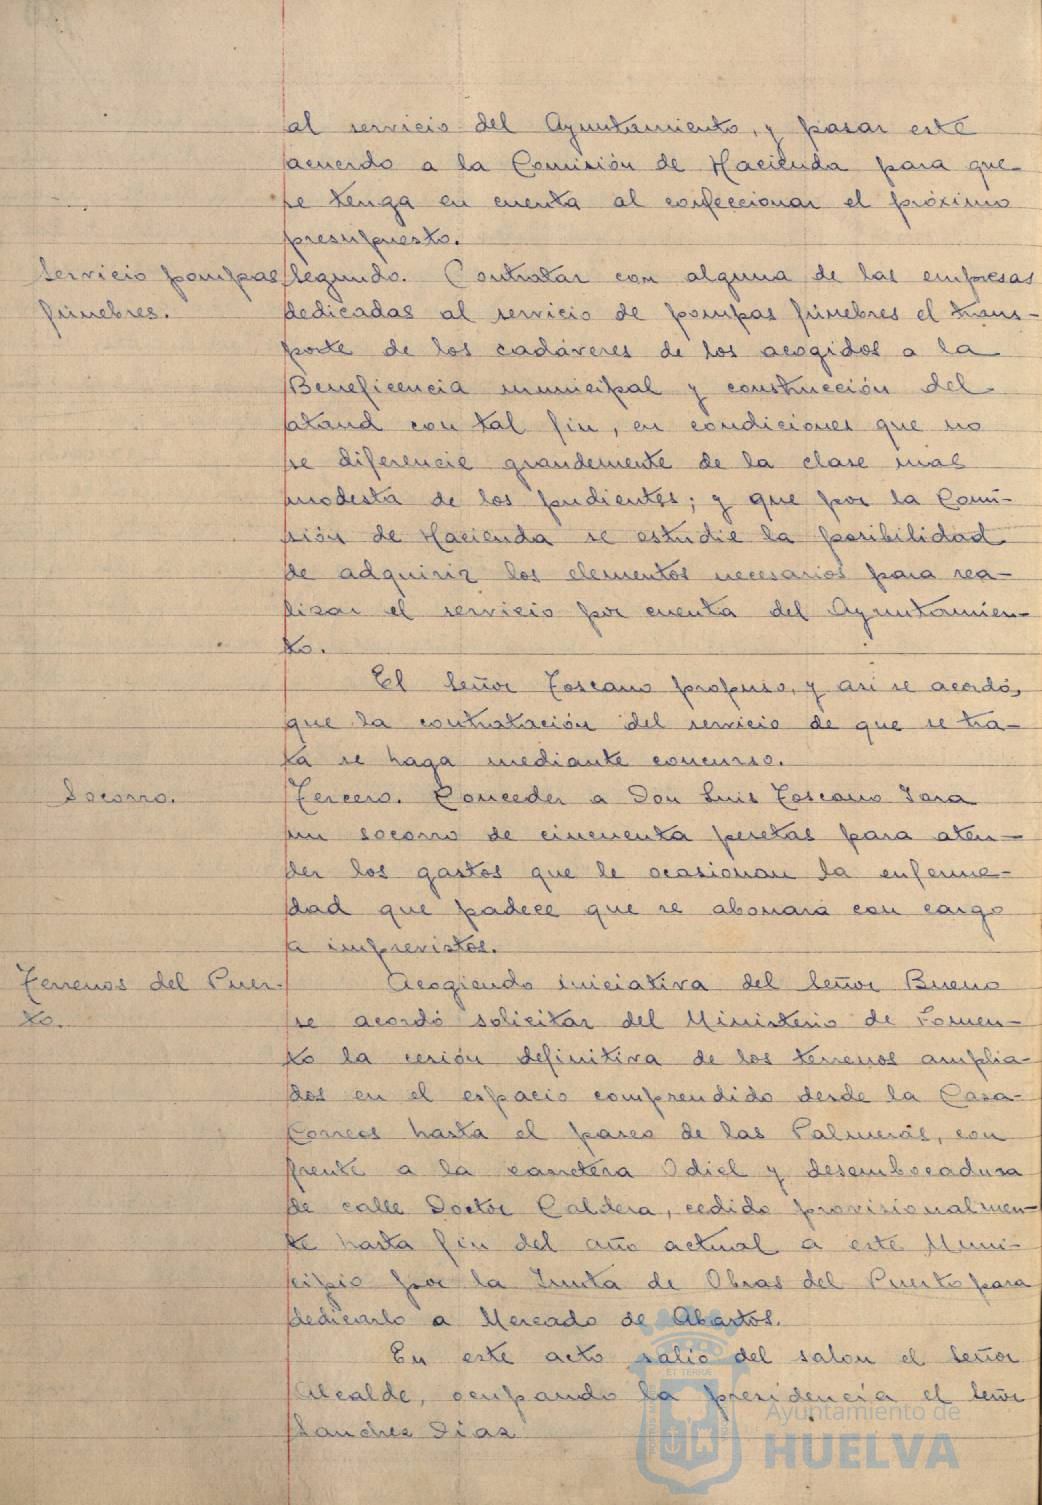 al servicio del Ayuntamiento, y pasar este
acuerdo a la Comisión de Hacienda para que
se tenga en cuenta al confeccionar el próximo
presupuesto.
Servicio pompas
fúnebres.
Segundo. Contratar con alguna de las empresas
dedicadas al servicio de pompas fúnebres el trans-
porte de los cadáveres de los acogidos a la
Beneficencia municipal y construcción del
ataud con tal fin, en condiciones que no
se diferencie grandemente de la clase mas
modesta de los pudientes; y que por la Comi-
sión de Hacienda se estudie la posibilidad
de adquirir los elementos necesarios para rea-
lizar el servicio por cuenta del Ayuntamien-
to.
El Señor Toscano propuso, y asi se acordó,
que la contratación del servicio de que se tra-
ta se haga mediante concurso.
Socorro.
Tercero. Conceder a Don Luis Toscano Jara
un socorro de cincuenta pesetas para aten-
der los gastos que le ocasionan la enferme-
dad que padece que se abonará con cargo
a imprevistos.
Terrenos del Puer-
to.
Acogiendo iniciativa del Señor Bueno
se acordó solicitar del Ministerio de Fomen-
to la cesión definitiva de los terrenos amplia-
dos en el espacio comprendido desde la Casa-
Correos hasta el paseo de las Palmeras, con
frente a la carretera Odiel y desembocadura
de calle Doctor Caldera, cedido provisionalmen-
te hasta fin del año actual a este Muni-
cipio por la Junta de Obras del Puerto para
dedicarlo a Mercado de Abastos.
En este acto salió del salon el Señor
Alcalde, ocupando la presidencia el Señor
Sanchez Diaz
Ayuntamiento de
HUELVA